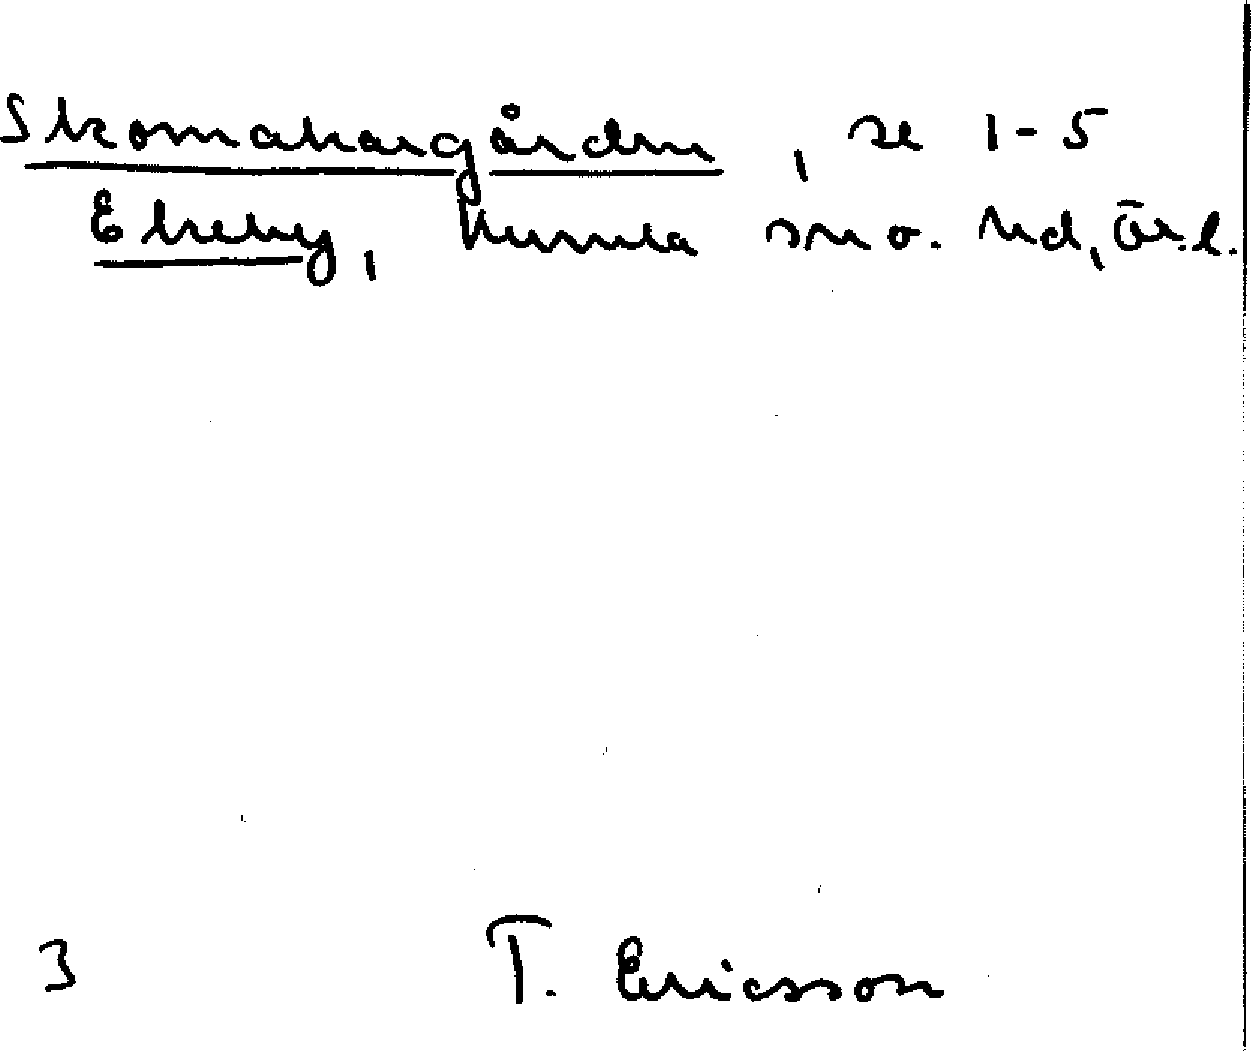 Skomakargården, se 1-5
Ekeby, Kumla sn o. hd, Ör. l.
3 T. Ericsson